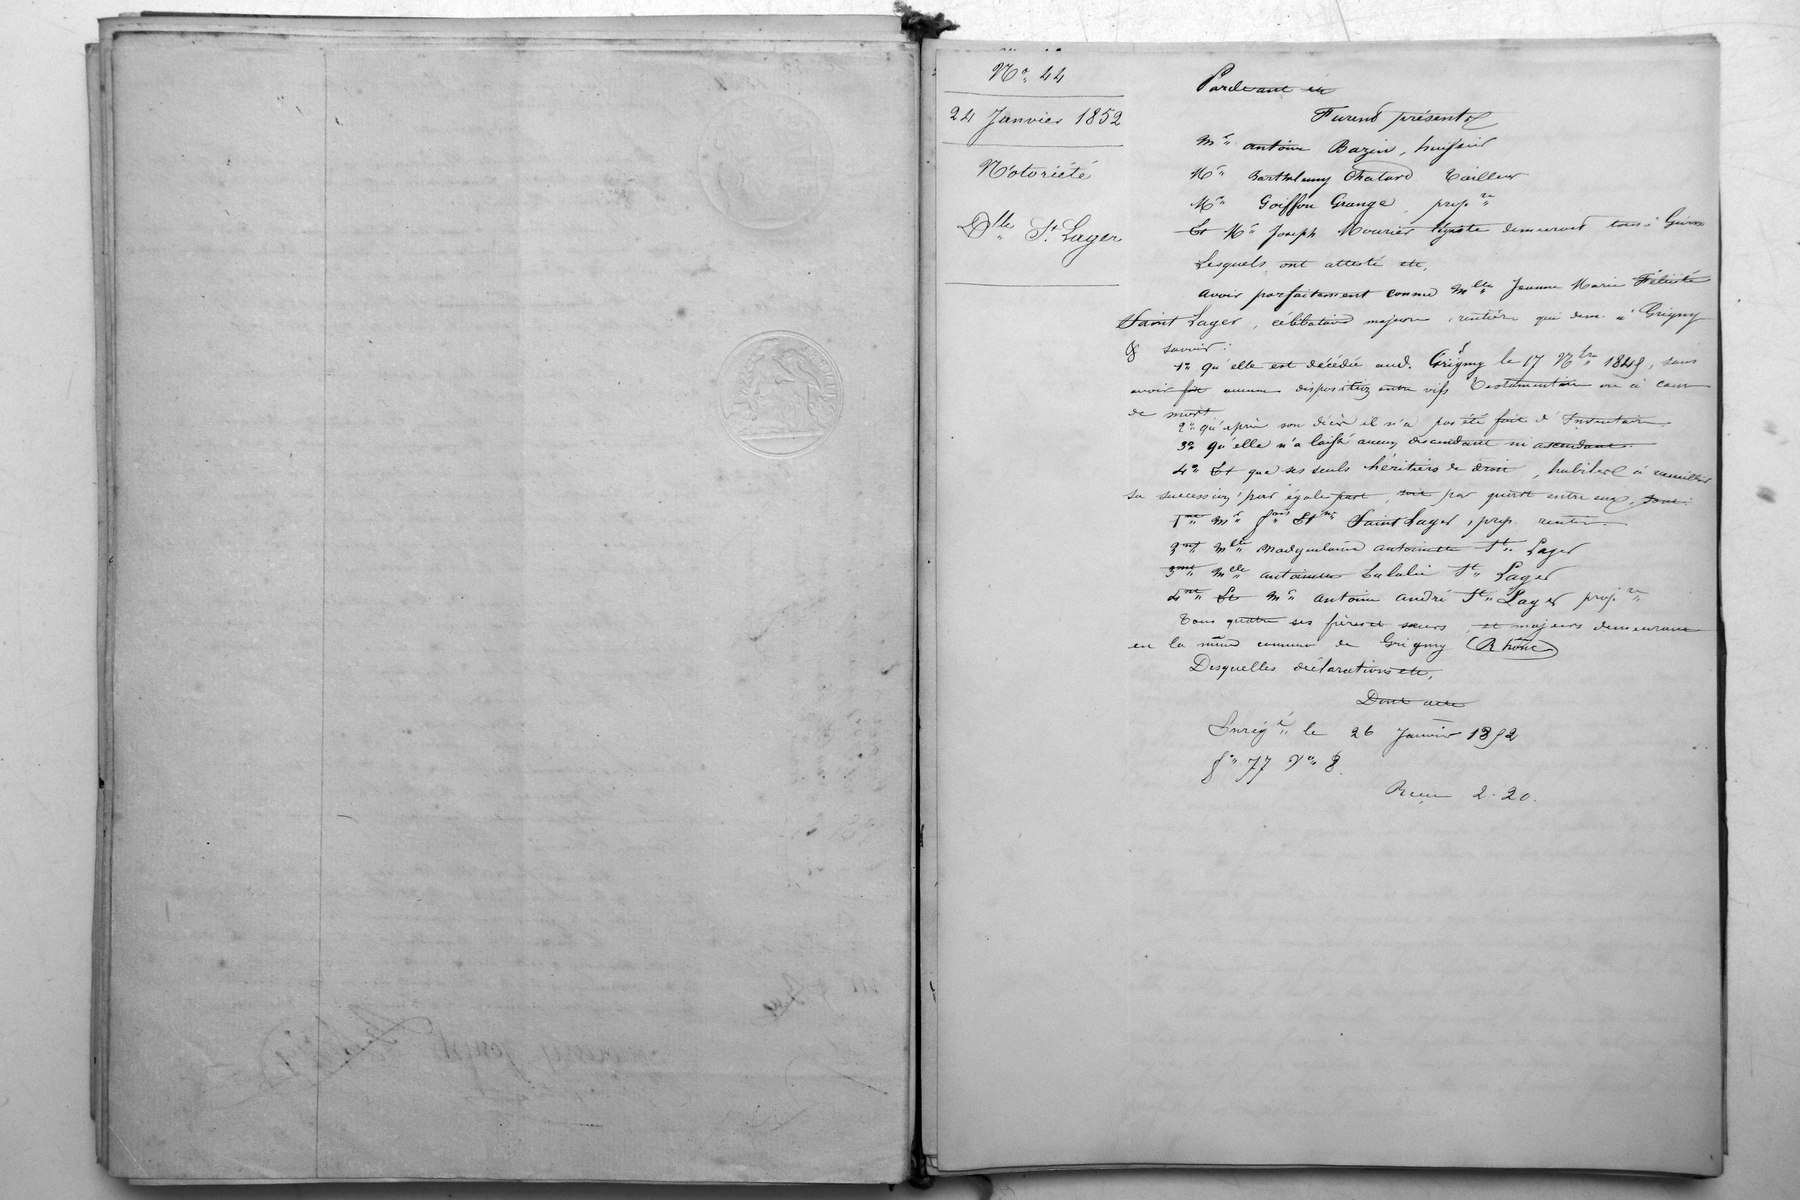 No. 44
24 Janvier 1852
Notoriété
Dlle St. Lager
Pardevant etc
Furent présents
Mr. Antoine Bazin, huissier
Mr. Barthelemy Chatard Tailleur
Mr. Goiffon Grange, prop.re
Et Mr. Joseph Mourier demeurant tous à Givors
Lesquels ont attesté etc,
Avoir parfaitement connu Mlle Jeanne Marie Félicité
Saint Lager, célibataire majeure, rentière qui dem. à Grigny
& savoir:
1o. qu'elle est décédée aud. Grigny le 17 Nbre 1848, sans
avoir fait aucune disposition entre vifs Testamentaire ou à cause
de mort
2o. qu'après son décès il n'a pas été fait d'Inventaire
3o. qu'elle n'a laissé aucun descendant ni ascendant.
4o. Et que ses seuls héritiers de droit, habiles à recueillir
sa succession, par égale part, soit par quart entre eux, sont:
1ent. Mr. fois Et.ne Saint Lager, prop. rentier
2ent. Mlle Magdelaine Antoinette St. Lager
3ent. Mlle Antoinette Eulalie St. Lager
4ent. Et Mr. Antoine André St. Lager prop.re
Tous quatre ses frères et sœurs, et majeurs demeurant
en la même commune de Grigny (Rhône)
Desquelles déclarations etc,
Dont acte
Enregé. le 26 Janvier 1852
fo. 77 Vo. 8.
Recu 2.20.